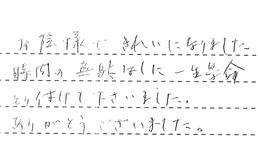 お陰様できれいになりました
時間の無駄なし一生懸命
とり付けて下さいました。
ありがとうございました。